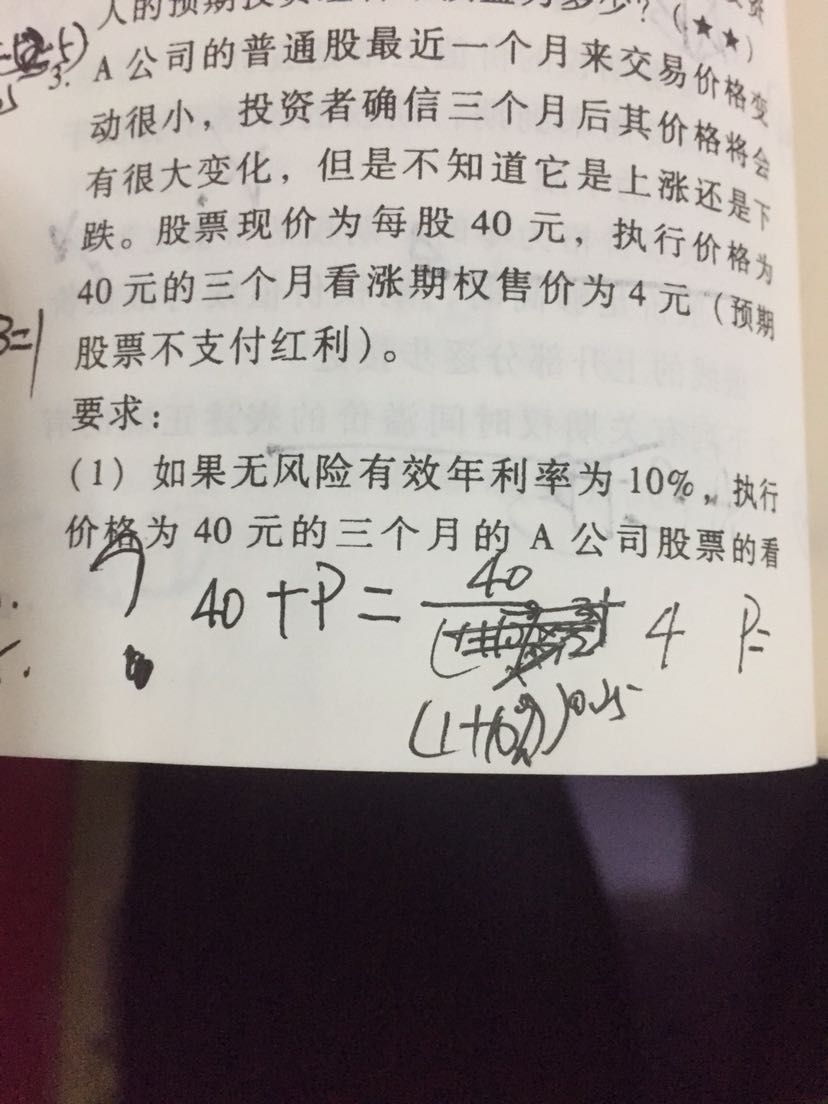 人的预期投资
多少？（★★）
3. A公司的普通股最近一个月来交易价格变
动很小，投资者确信三个月后其价格将会
有很大变化，但是不知道它是上涨还是下
跌。股票现价为每股 40 元，执行价格为
40 元的三个月看涨期权售价为 4 元（预期
股票不支付红利）。
要求：
（1）如果无风险有效年利率为 10%，执行
价格为 40 元的三个月的 A 公司股票的看
? 40+P= 40 + 4 P=
(1+10%)^0.25